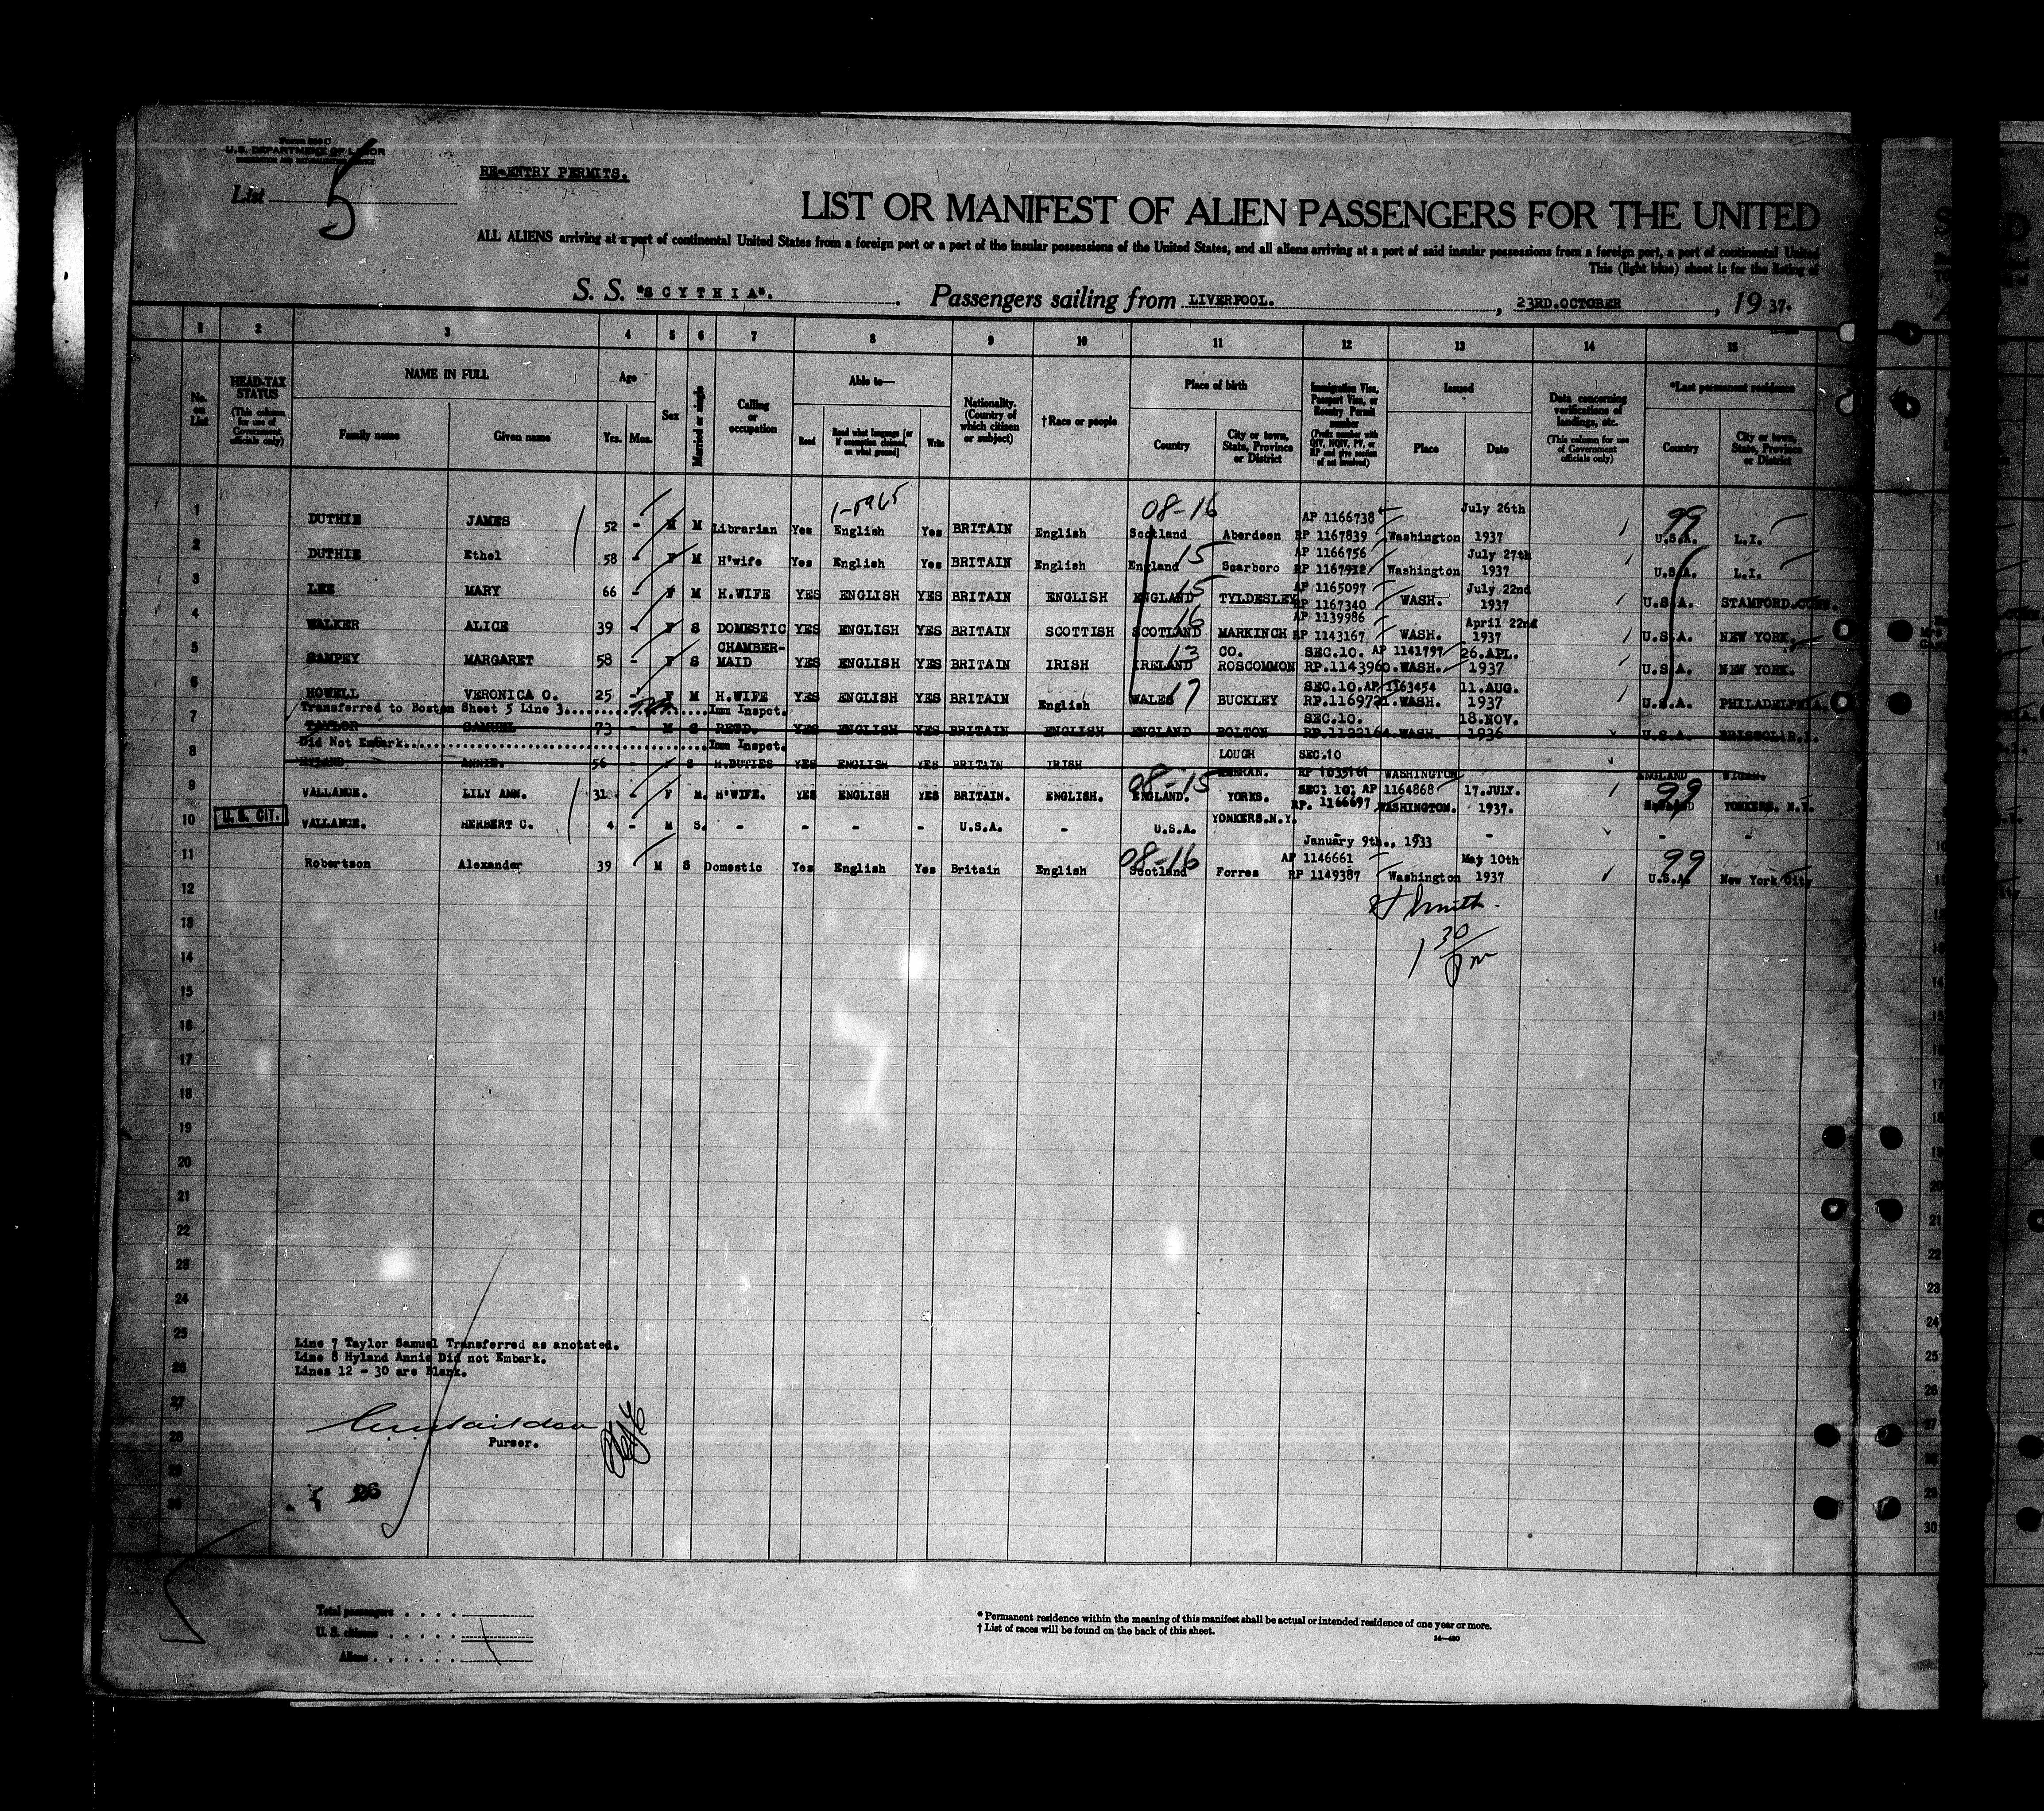 Form 500 C
U.S. DEPARTMENT OF LABOR
List 5
RE-ENTRY PERMITS.
LIST OR MANIFEST OF ALIEN PASSENGERS FOR THE UNITED
ALL ALIENS arriving at a port of continental United States from a foreign port or a port of the insular possessions of the United States, and all aliens arriving at a port of said insular possessions from a foreign port, a port of continental United
This (light blue) sheet is for the listing of
S. S. "SCYTHIA". Passengers sailing from LIVERPOOL. , 23RD.OCTOBER , 19 37.
1 2 3 4 5 6 7 8 9 10 11 12 13 14 15
No. on List
HEAD-TAX STATUS (This column for use of Government officials only)
NAME IN FULL Family name Given name
Age Yrs. Mos.
Sex
Married or single
Calling or occupation
Able to— Read Read what language [or if exemption claimed, on what ground] Write
Nationality. (Country of which citizen or subject)
†Race or people
Place of birth Country City or town, State, Province or District
Immigration Visa, Passport Visa, or Reentry Permit number (Prefix number with QIV, NQIV, PV, or RP and give section of act involved)
Issued Place Date
Data concerning verifications of landings, etc. (This column for use of Government officials only)
*Last permanent residence Country City or town, State, Province or District
1 DUTHIE JAMES 52 - M M Librarian Yes English Yes BRITAIN English 08-16 Scotland Aberdeen AP 1166738 RP 1167839 Washington July 26th 1937 99 U.S.A. L.I.
2 DUTHIE Ethel 58 - F M H'wife Yes English Yes BRITAIN English England 15 Scarboro AP 1166756 RP 1167912 Washington July 27th 1937 U.S.A. L.I.
3 LEE MARY 66 - F M H.WIFE YES ENGLISH YES BRITAIN ENGLISH ENGLAND 15 TYLDESLEY AP 1165097 RP 1167340 WASH. July 22nd 1937 U.S.A. STAMFORD.CONN.
4 WALKER ALICE 39 - F S DOMESTIC YES ENGLISH YES BRITAIN SCOTTISH SCOTLAND 16 MARKINCH AP 1139986 RP 1143167 WASH. April 22nd 1937 U.S.A. NEW YORK.
5 SAMPEY MARGARET 58 - F S CHAMBER-MAID YES ENGLISH YES BRITAIN IRISH IRELAND 13 CO. ROSCOMMON SEC.10. AP 1141797 RP.1143960. WASH. 26.APL. 1937 U.S.A. NEW YORK.
6 HOWELL VERONICA O. 25 - F M H.WIFE YES ENGLISH YES BRITAIN English WALES 17 BUCKLEY SEC.10.AP 1163454 RP.1169721. WASH. 11.AUG. 1937 U.S.A. PHILADELPHIA.
Transferred to Boston Sheet 5 Line 3 Imm Inspct.
7 TAYLOR SAMUEL 73 - M S RETD. YES ENGLISH YES BRITAIN ENGLISH ENGLAND BOLTON SEC.10. RP.1122164. WASH. 18.NOV. 1936 U.S.A. BRISTOL R.I.
Did Not Embark Imm Inspct.
8 HYLAND ANNIE. 56 - F S H.DUTIES YES ENGLISH YES BRITAIN IRISH LOUGH SEC.10 RP 1035161 WASHINGTON ENGLAND WIGAN.
9 VALLANCE. LILY ANN. 31 F M. H'WIFE. YES ENGLISH YES BRITAIN. ENGLISH. 08-15 ENGLAND. YORKS. SEC. 10. AP 1164868 RP. 1166697 WASHINGTON. 17.JULY. 1937. 99 YONKERS. N.Y.
10 U.S. CIT. VALLANCE. HERBERT C. 4 - M S. - - - - U.S.A. - U.S.A. YONKERS.N.Y. - - - - -
January 9th., 1933
11 Robertson Alexander 39 M S Domestic Yes English Yes Britain English 08-16 Scotland Forres AP 1146661 RP 1149387 Washington May 10th 1937 99 U.S.A. New York City
12
13
14
15
16
17
18
19
20
21
22
23
24
25
26
27
28
29
30
Smith
1 30 pm
Line 7 Taylor Samuel Transferred as anotated.
Line 8 Hyland Annie Did not Embark.
Lines 12 - 30 are Blank.
Purser.
Total passengers
U. S. citizens
Aliens
* Permanent residence within the meaning of this manifest shall be actual or intended residence of one year or more.
† List of races will be found on the back of this sheet.